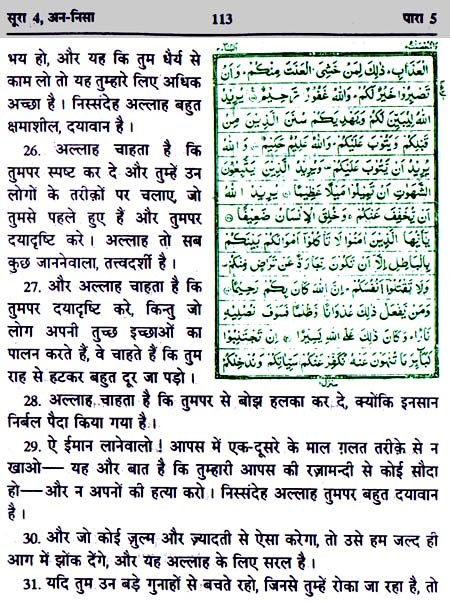 सूरा 4, अन-निसा 113 पारा 5
भय हो, और यह कि तुम धैर्य से
काम लो तो यह तुम्हारे लिए अधिक
अच्छा है । निस्संदेह अल्लाह बहुत
क्षमाशील, दयावान है ।
26. अल्लाह चाहता है कि
तुमपर स्पष्ट कर दे और तुम्हें उन
लोगों के तरीक़ों पर चलाए, जो
तुमसे पहले हुए हैं और तुमपर
दयादृष्टि करे । अल्लाह तो सब
कुछ जाननेवाला, तत्त्वदर्शी है ।
27. और अल्लाह चाहता है कि
तुमपर दयादृष्टि करे, किन्तु जो
लोग अपनी तुच्छ इच्छाओं का
पालन करते हैं, वे चाहते हैं कि तुम
राह से हटकर बहुत दूर जा पड़ो ।
الْعَذَابِ ذٰلِكَ لِمَنْ خَشِيَ الْعَنَتَ مِنْكُمْ وَاَنْ
تَصْبِرُوْا خَيْرٌ لَّكُمْ وَاللّٰهُ غَفُوْرٌ رَّحِيْمٌ يُرِيْدُ
اللّٰهُ لِيُبَيِّنَ لَكُمْ وَيَهْدِيَكُمْ سُنَنَ الَّذِيْنَ مِنْ
قَبْلِكُمْ وَيَتُوْبَ عَلَيْكُمْ وَاللّٰهُ عَلِيْمٌ حَكِيْمٌ وَاللّٰهُ
يُرِيْدُ اَنْ يَّتُوْبَ عَلَيْكُمْ وَيُرِيْدُ الَّذِيْنَ يَتَّبِعُوْنَ
الشَّهَوٰتِ اَنْ تَمِيْلُوْا مَيْلًا عَظِيْمًا يُرِيْدُ اللّٰهُ
اَنْ يُّخَفِّفَ عَنْكُمْ وَخُلِقَ الْاِنْسَانُ ضَعِيْفًا
يٰاَيُّهَا الَّذِيْنَ اٰمَنُوْا لَا تَاْكُلُوْا اَمْوَالَكُمْ بَيْنَكُمْ
بِالْبَاطِلِ اِلَّا اَنْ تَكُوْنَ تِجَارَةً عَنْ تَرَاضٍ مِّنْكُمْ
وَلَا تَقْتُلُوْا اَنْفُسَكُمْ اِنَّ اللّٰهَ كَانَ بِكُمْ رَحِيْمًا
وَمَنْ يَّفْعَلْ ذٰلِكَ عُدْوَانًا وَّظُلْمًا فَسَوْفَ نُصْلِيْهِ
نَارًا وَكَانَ ذٰلِكَ عَلَى اللّٰهِ يَسِيْرًا اِنْ تَجْتَنِبُوْا
كَبَآئِرَ مَا تُنْهَوْنَ عَنْهُ نُكَفِّرْ عَنْكُمْ سَيِّاٰتِكُمْ وَنُدْخِلْكُمْ
28. अल्लाह चाहता है कि तुमपर से बोझ हलका कर दे, क्योंकि इनसान
निर्बल पैदा किया गया है ।
29. ऐ ईमान लानेवालो ! आपस में एक-दूसरे के माल ग़लत तरीक़े से न
खाओ— यह और बात है कि तुम्हारी आपस की रज़ामन्दी से कोई सौदा
हो—और न अपनों की हत्या करो । निस्संदेह अल्लाह तुमपर बहुत दयावान
है ।
30. और जो कोई ज़ुल्म और ज़्यादती से ऐसा करेगा, तो उसे हम जल्द ही
आग में झोंक देंगे, और यह अल्लाह के लिए सरल है ।
31. यदि तुम उन बड़े गुनाहों से बचते रहो, जिनसे तुम्हें रोका जा रहा है, तो